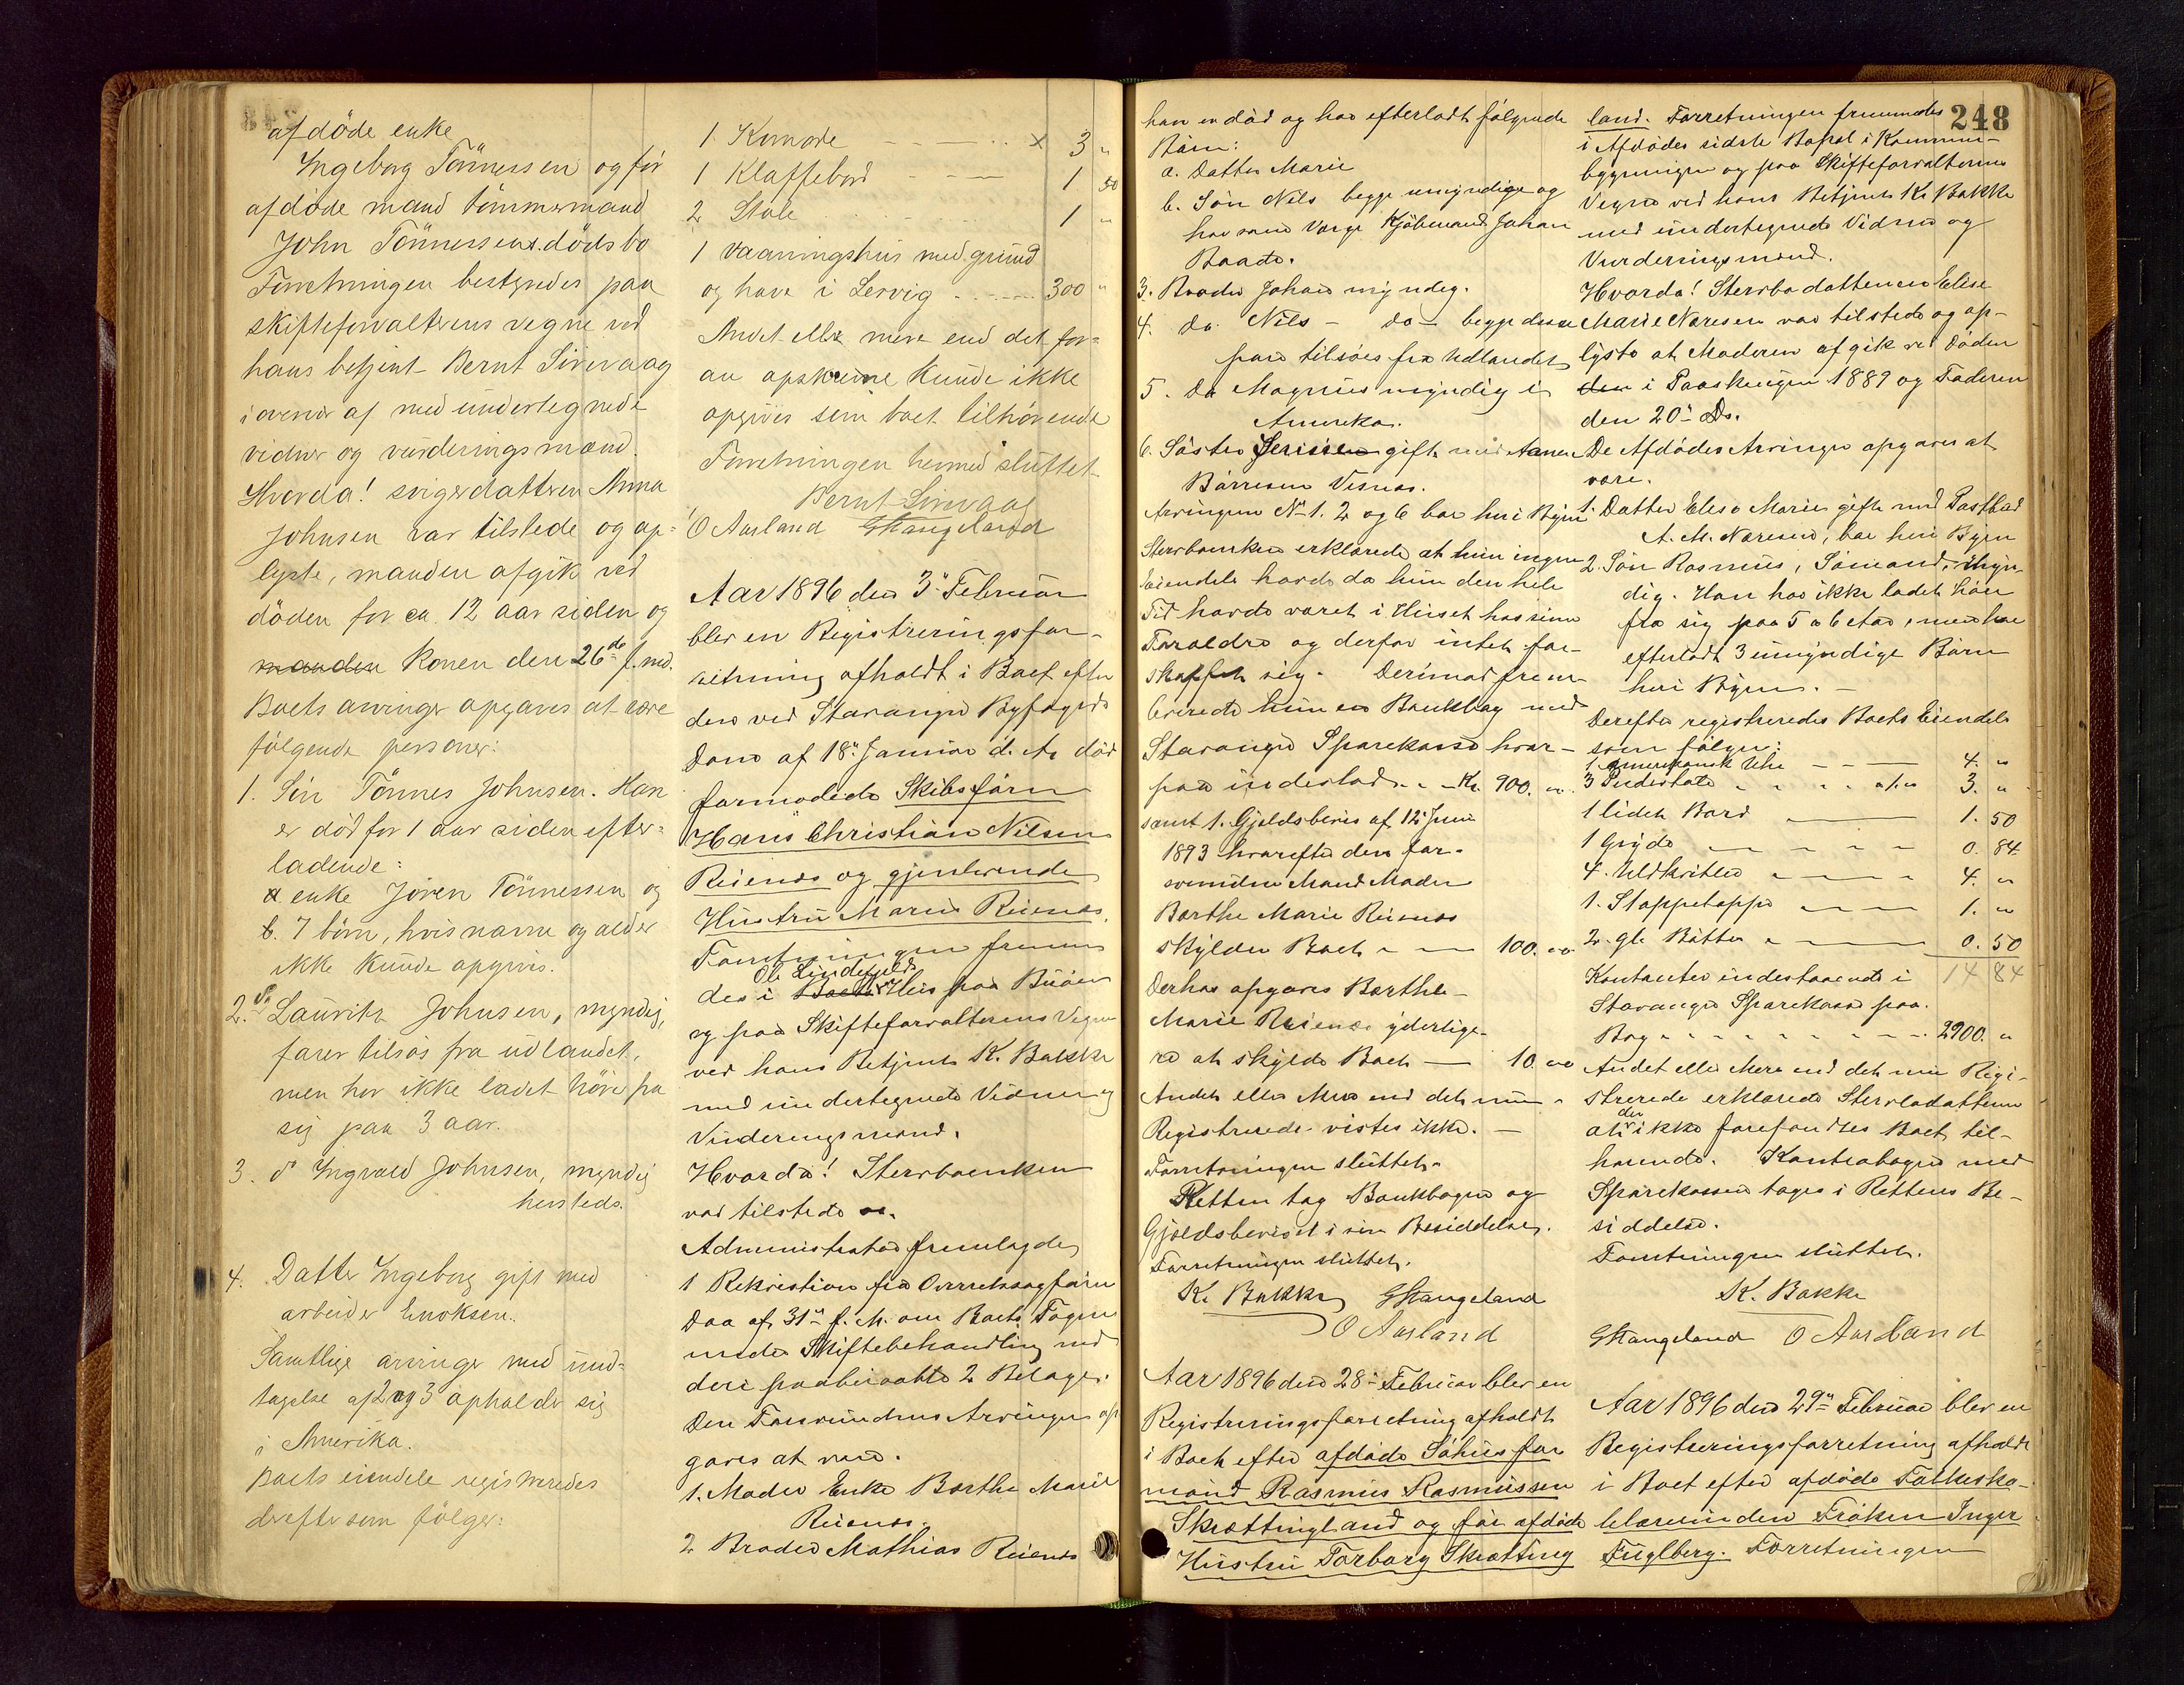 afdöde enke
Ingeborg Tönnessen og før
afdöde mand tömmermand
John Tönnessens dödsbo
Forretningen bestyredes paa
skifteforvalterens vegne ved
hans betjent Bernt Sirevaag
i overvær af medundertegnede
vidner og vurderingsmænd.
Hvorda! svigerdatteren Anna
Johnsen var tilstede og op-
lyste, manden afgik ved
döden for ca. 12 aar siden og
manden konen den 26de f. md.
Boets arvinger opgaves at være
fölgende personer:
1. Sön Tönnes Johnsen. Han
er död for 1 aar siden efter-
ladende:
a enke Jören Tönnessen og
b. 7 börn, hvis navne og alder
ikke kunde opgives.
2. do Lauritz Johnsen, myndig,
farer tilsøs fra udlandet,
men har ikke ladet höre fra
sig paa 3 aar.
3. do Ingvald Johnsen, myndig
hersteds.
4. Datter Ingeborg gift med
arbeider Enoksen.
Samtlige arvinger med und-
tagelse af 2 og 3 opholder sig
i Amerika.
Boets eiendele registreredes
derefter som fölger:
1 Komode x 3 "
1 Klaffebord 1 50
2 Stole 1 "
1 vaaningshus med grund
og have i Lervig 300 "
Andet eller mere end det for-
an opskrevne kunde ikke
opgives som boet tilhörende
Forretningen hermed sluttet
Bernt Sirevaag
O Aarland GStangeland
Aar 1896 den 3" Februar
blev en Registreringsfor-
retning afholdt i Boet efter
den ved Stavanger Byfogeds
Dom af 18" Januar d. A. död
formodede Skibsförer
Hans Christian Nilsen
Reienæs og gjenlevende
Hustru Marie Reienæs.
Forretningen fremme
Ole Lindefjelds
des i Boets Hus paa Buöen
og paa Skifteforvalterens Vegne
ved hans Betjent K. Bakke
med undertegnede Vidner og
Vurderingsmænd.
Hvorda! Stervboenken
var tilstede
Administrator fremlagde
1 Rekvisition fra Overretssagförer
Daa af 31" f. M. om Boets Tagen
under Skiftebehandling med
deri paaberaabte 2 Bilage.
Den Forsvundnes Arvinger op
gaves at være.
1. Moder Enke Berthe Marie
Reienæs.
2 Broder Mathias Reienæs
248
han er död og har efterladt følgende
Börn:
a. Datter Marie
b. Sön Nils begge umyndige og
har som Værge Kjöbmand Johan
Baade.
3. Broder Johan myndig.
4. do Nils - do - begge disse
fare tilsöes fra Udlandet
5. do Magnus myndig i
Amerika.
6. Söster gift med
Börresen Visnæs.
Arvingerne No 1. 2 og 6 bor her i Byen
Stervboenken erklærede at hun ingen
Eiendele havde da hun den hele
Tid havde været i Huset hos sine
Forældre og derfor intet for-
skaffet sig. Derimod frem-
leverede hun en Bankbog med
Stavanger Sparekasse hvor-
paa indestod Kr. 900. "
samt 1. Gjældsbevis af 12" Juni
1893 hvorefter den for-
svundne Mands Moder
Berthe Marie Reienæs
skylder Boet 100. "
Derhos opgaves Berthe
Marie Reienæs yderlige-
re at skylde Boet 10. "
Andet eller Mere end det nu
Registrerede vistes ikke.
Forretningen sluttet.
Retten tog Bankbogen og
Gjældsbeviset i sin Besiddelse.
Forretningen sluttet.
K. Bakke GStangeland
O Aarland
Aar 1896 den 28" Februar blev en
Registreringsforretning afholdt
i Boet efter afdöde Söhusfor
mand Rasmus Rasmussen
Skrættingland og för afdöde
Hustru Torborg Skrætting
land. Forretningen fremmedes
i Afdödes sidste Bopæl i Kommune-
bygningen og paa Skifteforvalterens
Vegne ved hans Betjent K. Bakke
med undertegnede Vidner og
Vurderingsmænd.
Hvorda! Stervbodatteren Elise
Marie Næresen var tilstede og op-
lyste at Moderen afgik ved Döden
den i Paaskeugen 1889 og Faderen
den 20" Ds.
De Afdödes Arvinger opgaves at
være.
1. Datter Elise Marie gift med Postbud
A. M. Næresen, bor her i Byen
2. Sön Rasmus, Sömand, myn
dig. Han har ikke ladet höre
fra sig paa 5 a 6 Aar, men har
efterladt 3 umyndige Börn
her i Byen.
Derefter registreredes Boets Eiendele
som fölger:
1 amerikansk Uhr 4. "
3 Pindestole a 1." 3. "
1 lidet Bord 1. 50
1 Gryde 0. 84
4. Uldkritler 4. "
1. Stoppetæppe 1. "
2. gl. Bötter 0. 50
14 84
Kontanter indestaaende i
Stavanger Sparekasse paa
Bog 2900. "
Andet eller Mere end det nu Regi-
strerede erklærede Stervbodatteren
at der ikke forefandtes Boet til-
hørende. Kontrabogen med
Sparekassen toges i Rettens Be-
siddelse.
Forretningen sluttet.
K. Bakke
GStangeland O Aarland
Aar 1896 den 29" Februar blev en
Registreringsforretning afholdt
i Boet efter afdöde Folkesko-
lelærerinden Fröken Inger
Fuglberg. Forretningen